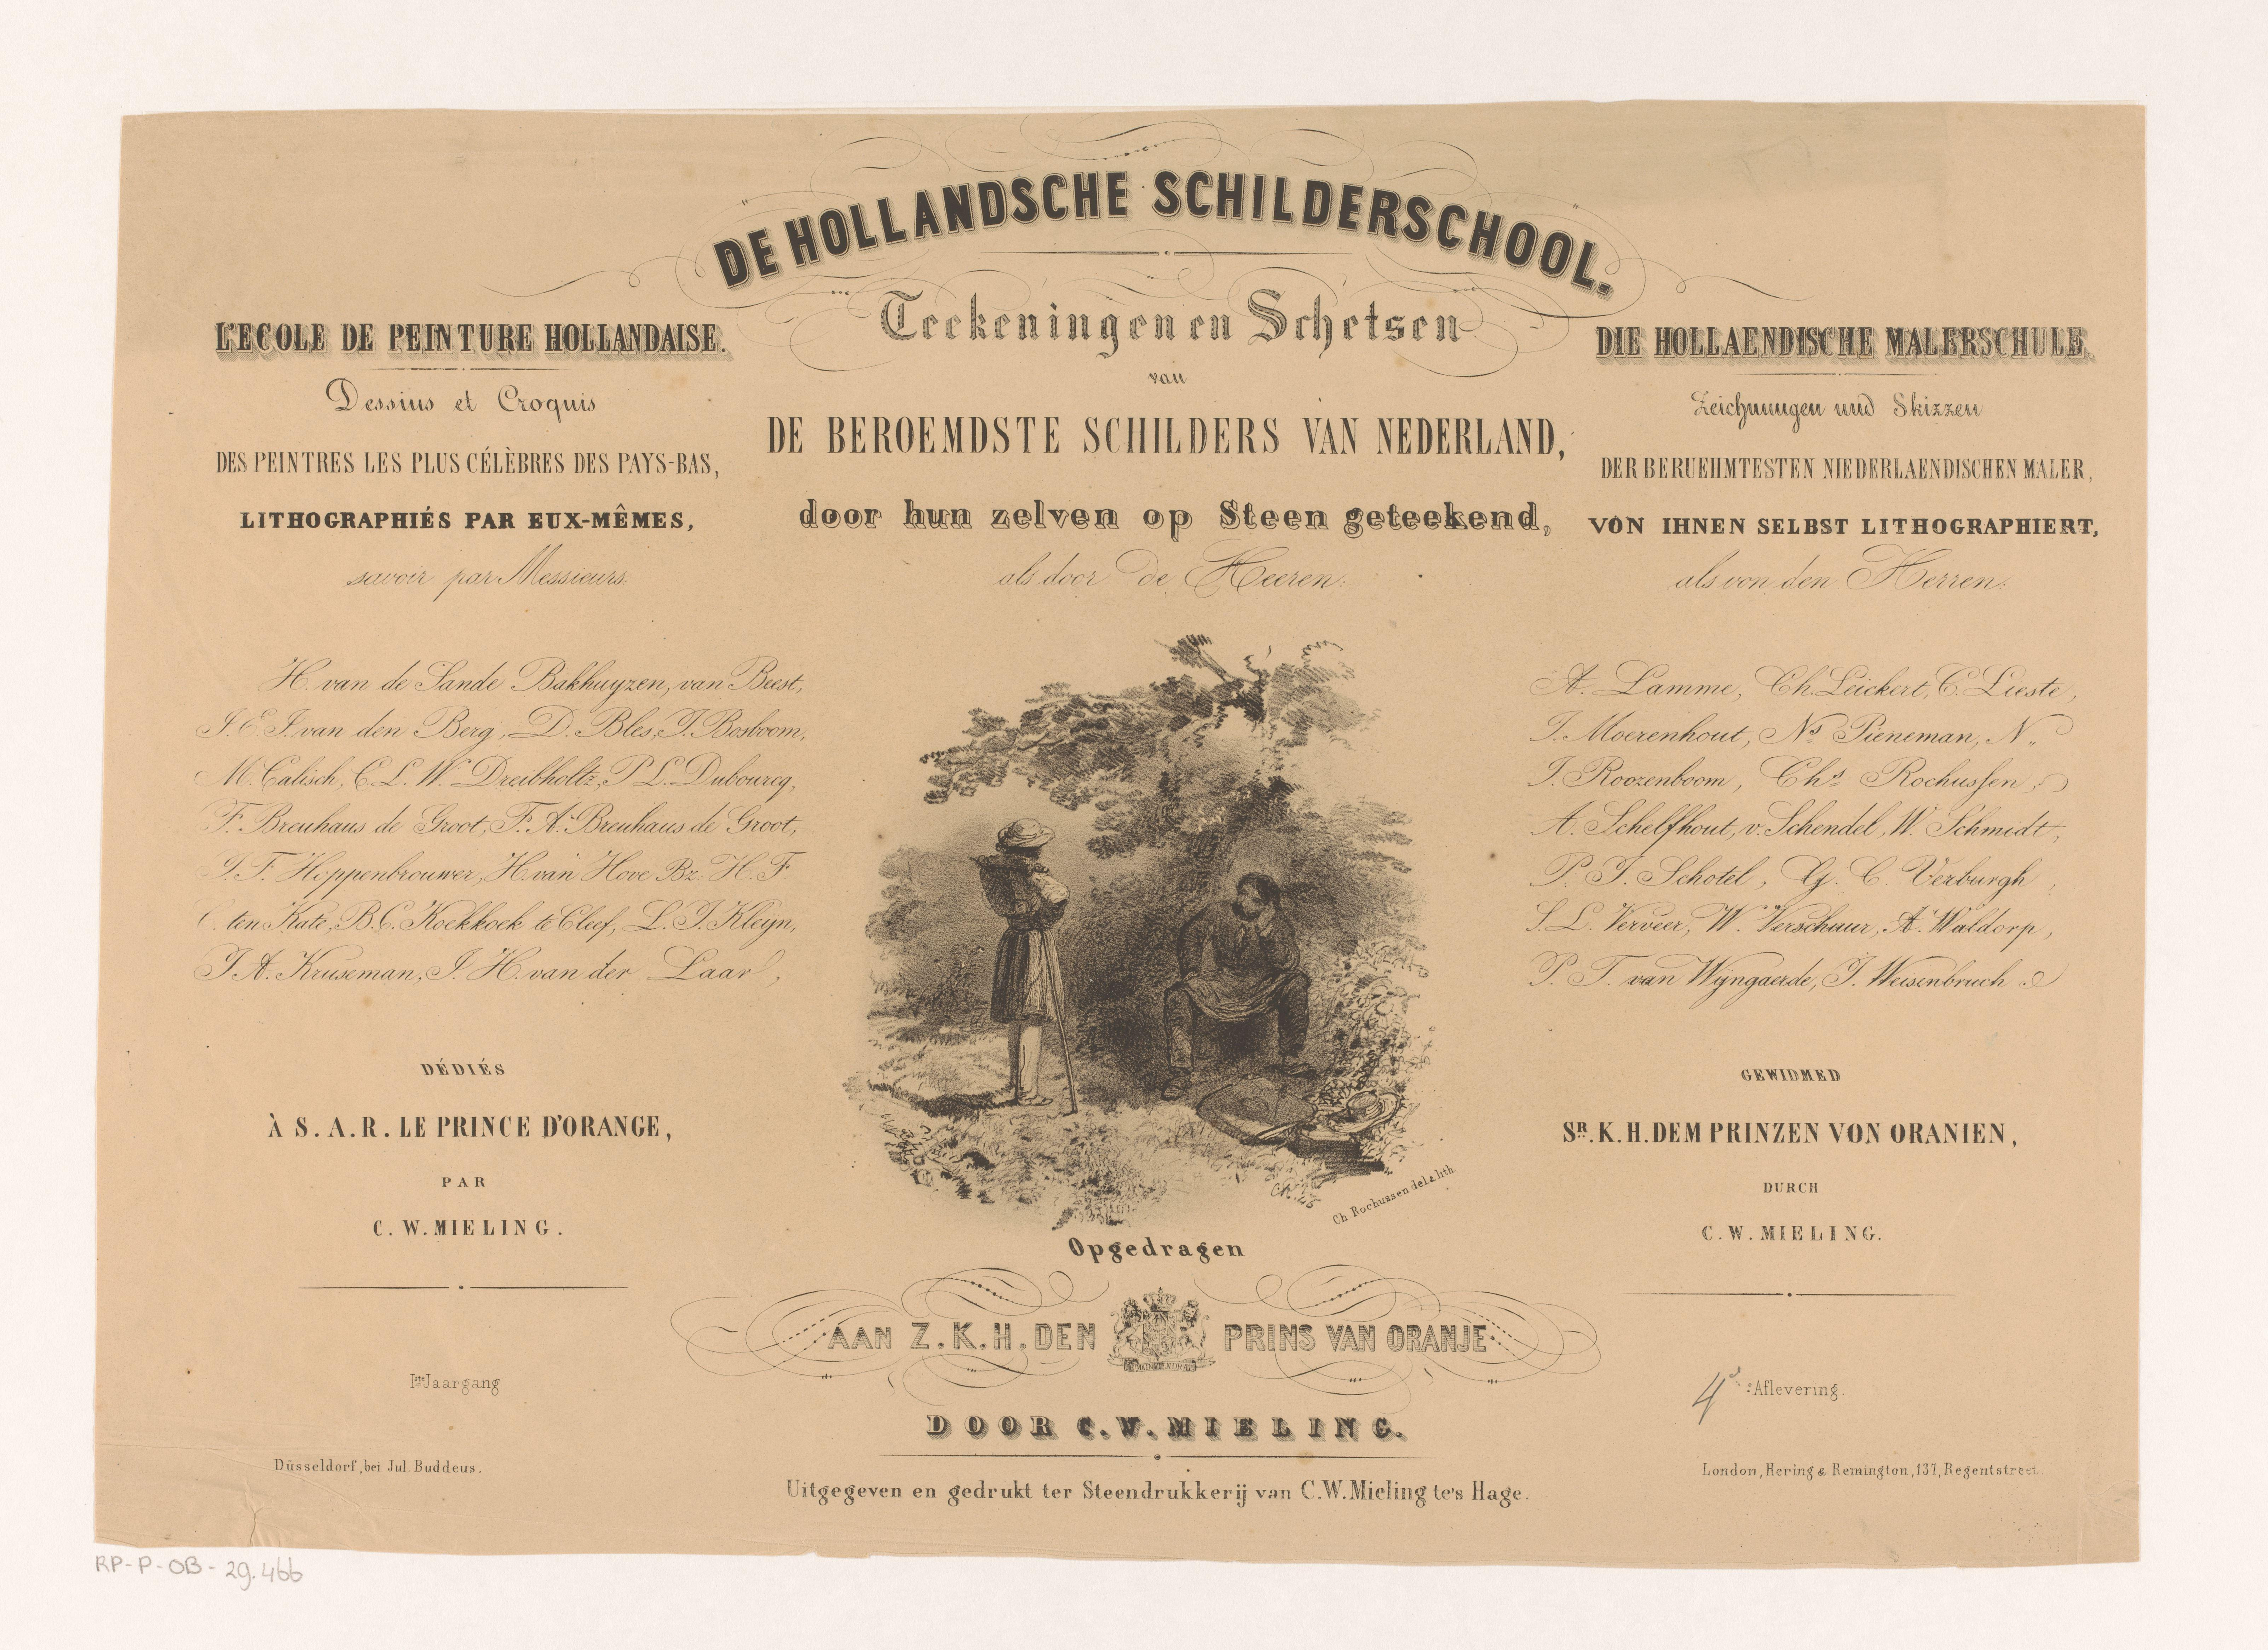 DE HOLLANDSCHE SCHILDERSCHOOL.
Teekeningen en Schetsen
van
DE BEROEMDSTE SCHILDERS VAN NEDERLAND,
door hun zelven op Steen geteekend,
als door de Heeren:
L'ECOLE DE PEINTURE HOLLANDAISE.
Dessins et Croquis
DES PEINTRES LES PLUS CÉLÈBRES DES PAYS-BAS,
LITHOGRAPHIÉS PAR EUX-MÊMES,
savoir par Messieurs:
H. van de Sande Bakhuyzen, van Beest,
J. E. J. van den Berg, D. Bles, J. Bosboom,
M. Calisch, C. L. W. Dreibholtz, P. L. Dubourcq,
F. Breuhaus de Groot, F. A. Breuhaus de Groot,
J. F. Hoppenbrouwer, H. van Hove Bz. H. F
C. ten Kate, B. C. Koekkoek te Cleef, L. J. Kleyn,
J. A. Kruseman, J. H. van der Laar,
DÉDIÉS
À S. A. R. LE PRINCE D'ORANGE,
PAR
C. W. MIELING.
Iste Jaargang
Düsseldorf, bei Jul. Buddeus.
DIE HOLLAENDISCHE MALERSCHULE.
Zeichnungen und Skizzen
DER BERUEHMTESTEN NIEDERLAENDISCHEN MALER,
VON IHNEN SELBST LITHOGRAPHIERT,
als von den Herren:
A. Lamme, Ch. Leickert, C. Lieste,
J. Moerenhout, Ns Pieneman, N.
J. Roozenboom, Chs Rochussen,
A. Schelfhout, v. Schendel, W. Schmidt,
P. J. Schotel, G. C. Verburgh,
S. L. Verveer, W. Verschuur, A. Waldorp,
P. T. van Wijngaerde, J. Weisenbruch
GEWIDMED
SR. K. H. DEM PRINZEN VON ORANIEN,
DURCH
C. W. MIELING.
4e Aflevering.
London, Hering & Remington, 137, Regentstreet.
CR. 46
Ch Rochussen del & lith
Opgedragen
AAN Z. K. H. DEN PRINS VAN ORANJE
DOOR C. W. MIELING.
Uitgegeven en gedrukt ter Steendrukkerij van C. W. Mieling te's Hage.
RP-P-OB-29.466